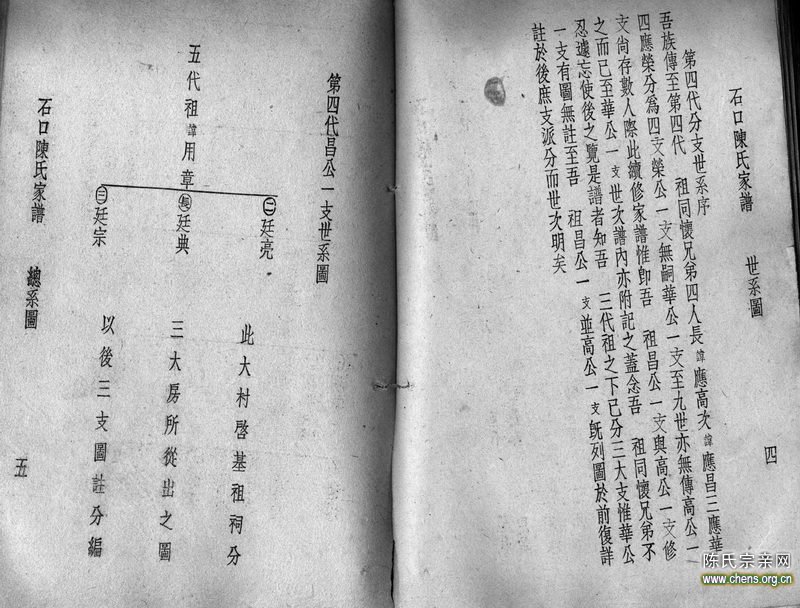 石口陳氏家譜 世系圖 四
第四代分支世系序
吾族傳至第四代 祖同懷兄弟四人長諱應高次諱應昌三應華
四應榮分爲四支榮公一支無嗣華公一支至九世亦無傳高公一
支尙存數人際此續修家譜惟卽吾 祖昌公一支與高公一支修
之而已至華公一支世次譜內亦附記之蓋念吾 祖同懷兄弟不
忍遽忘使後之覽是譜者知吾 三代祖之下已分三大支惟華公
一支有圖無註至吾 祖昌公一支並高公一支旣列圖於前復詳
註於後庶支派分而世次明矣
第四代昌公一支世系圖
五代祖諱用章
㊁廷亮
廷典
㊂廷宗
此大村啓基祖祠分
三大房所從出之圖
以後三支圖註分編
石口陳氏家譜 總系圖 五
陈氏宗亲网
www.chens.org.cn